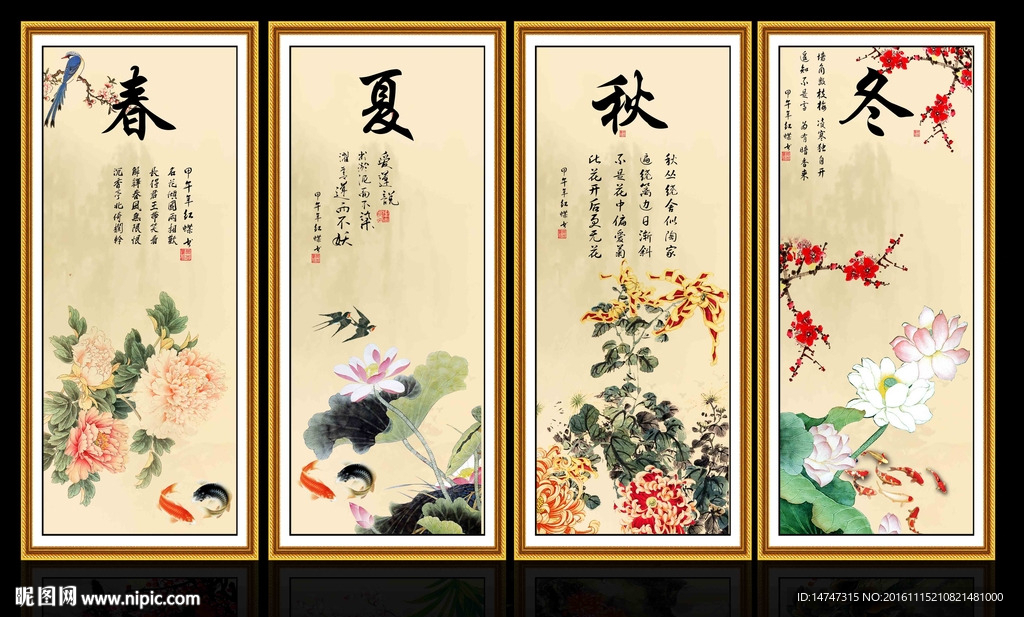 春
甲午年红蝶女
名花傾國兩相歡
長得君王帶笑看
解釋春風無限恨
沉香亭北倚闌幹
夏
愛蓮說
出淤泥而不染
濯清漣而不妖
甲午年红蝶女
秋
秋丛绕舍似陶家
遍绕篱边日渐斜
不是花中偏爱菊
此花开后更无花
甲午年红蝶女
冬
墙角数枝梅 凌寒独自开
遥知不是雪 为有暗香来
甲午年红蝶女
昵图网 www.nipic.com
ID:14747315 NO:20161115210821481000